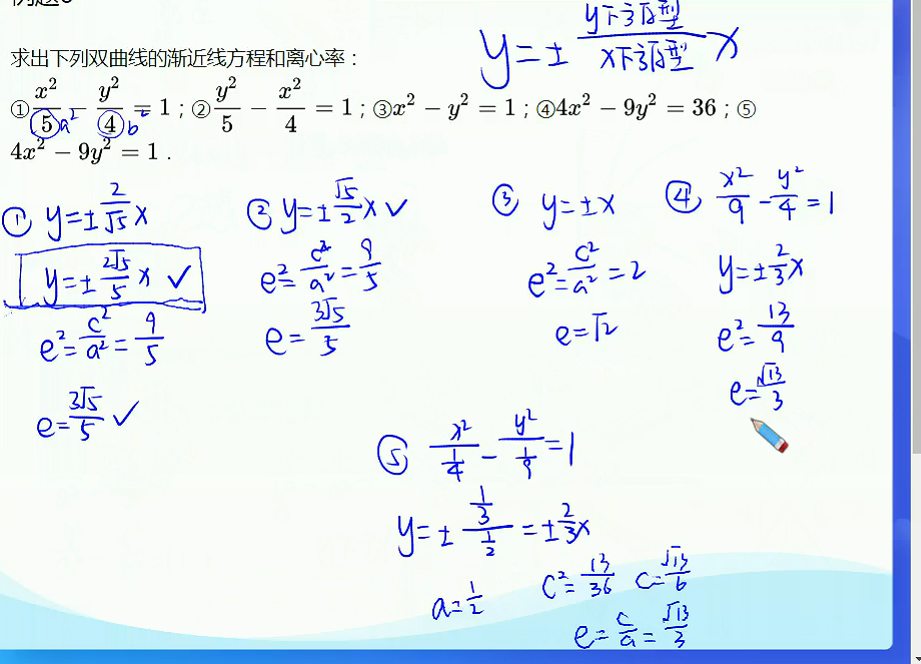 求出下列双曲线的渐近线方程和离心率：
① x²/5 − y²/4 = 1；② y²/5 − x²/4 = 1；③ x² − y² = 1；④ 4x² − 9y² = 36；⑤
4x² − 9y² = 1．
a² b²
y=± y下方的型/x下方的型 x
① y=± 2/√5 x
y=± 2√5/5 x ✓
e²= c²/a² = 9/5
e= 3√5/5 ✓
② y=± √5/2 x ✓
e²= c²/a² = 9/5
e= 3√5/5
③ y=±x
e²= c²/a² =2
e=√2
④ x²/9 − y²/4 =1
y=± 2/3 x
e²= 13/9
e= √13/3
⑤ x²/(1/4) − y²/(1/9) =1
y=± (1/3)/(1/2) = ± 2/3 x
a= 1/2 c²= 13/36 c= √13/6
e= c/a = √13/3